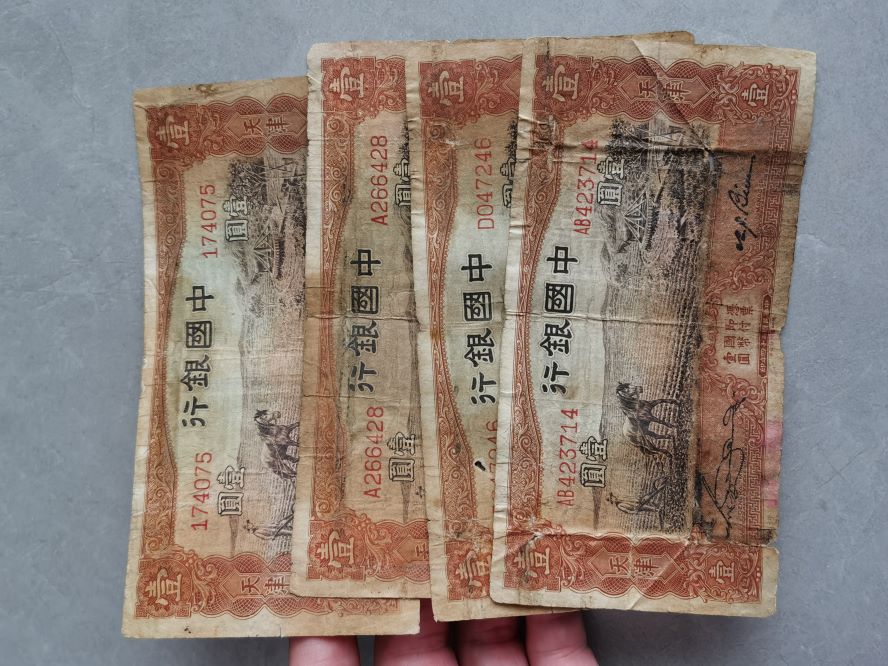 壹
天津
174075
壹圓
中國銀行
174075
壹圓
壹
天津
壹
A266428
壹圓
中國銀行
A266428
壹圓
壹
壹
D047246
中國銀行
壹
壹
天津
壹
AB423714
壹圓
中國銀行
憑票即付
國幣壹圓
AB423714
壹圓
壹
天津
壹